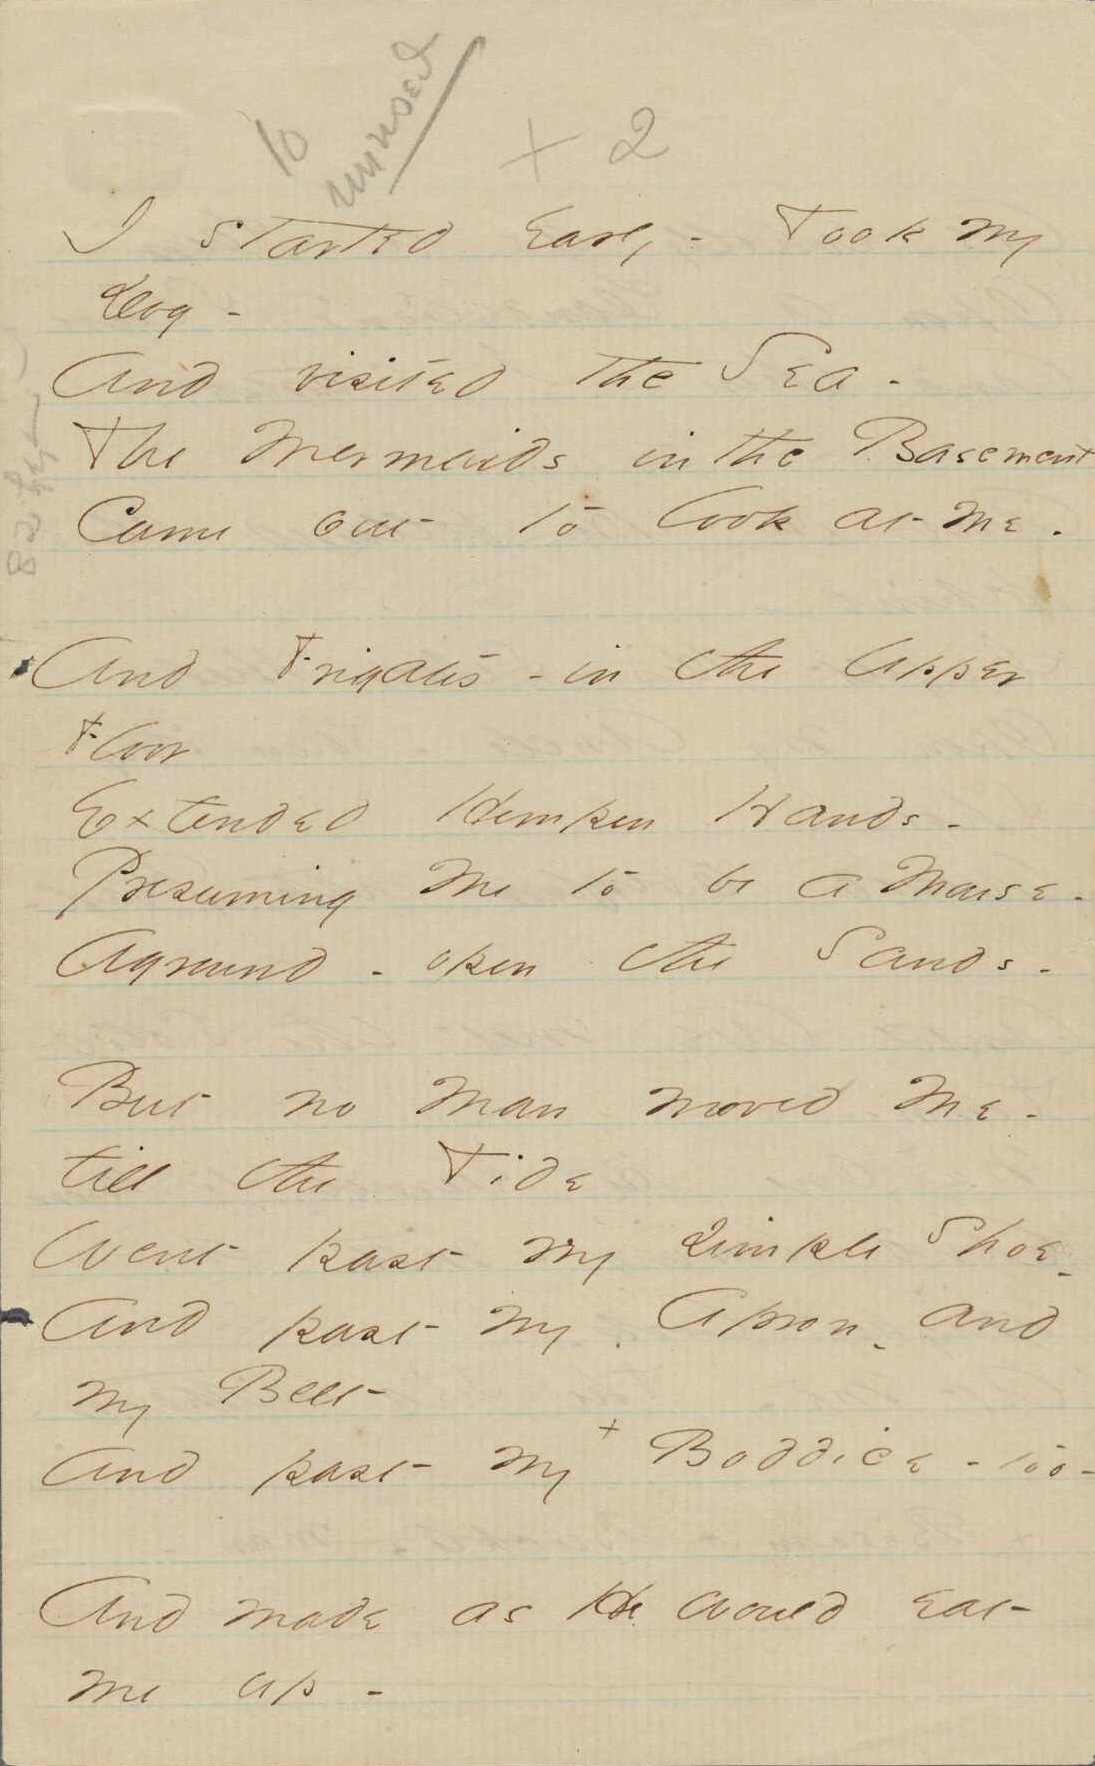 10
+ 2
I started Early - Took my
Dog -
And visited the Sea -
The Mermaids in the Basement
Came out to look at me -
And Frigates - in the Upper
Floor
Extended Hempen Hands -
Presuming Me to be a Mouse -
Aground - opon the Sands -
But no Man moved Me -
till the Tide
Went past my simple Shoe -
And past my Apron - and
my Belt
And past my + Boddice - too -
And made as He would eat
me up -